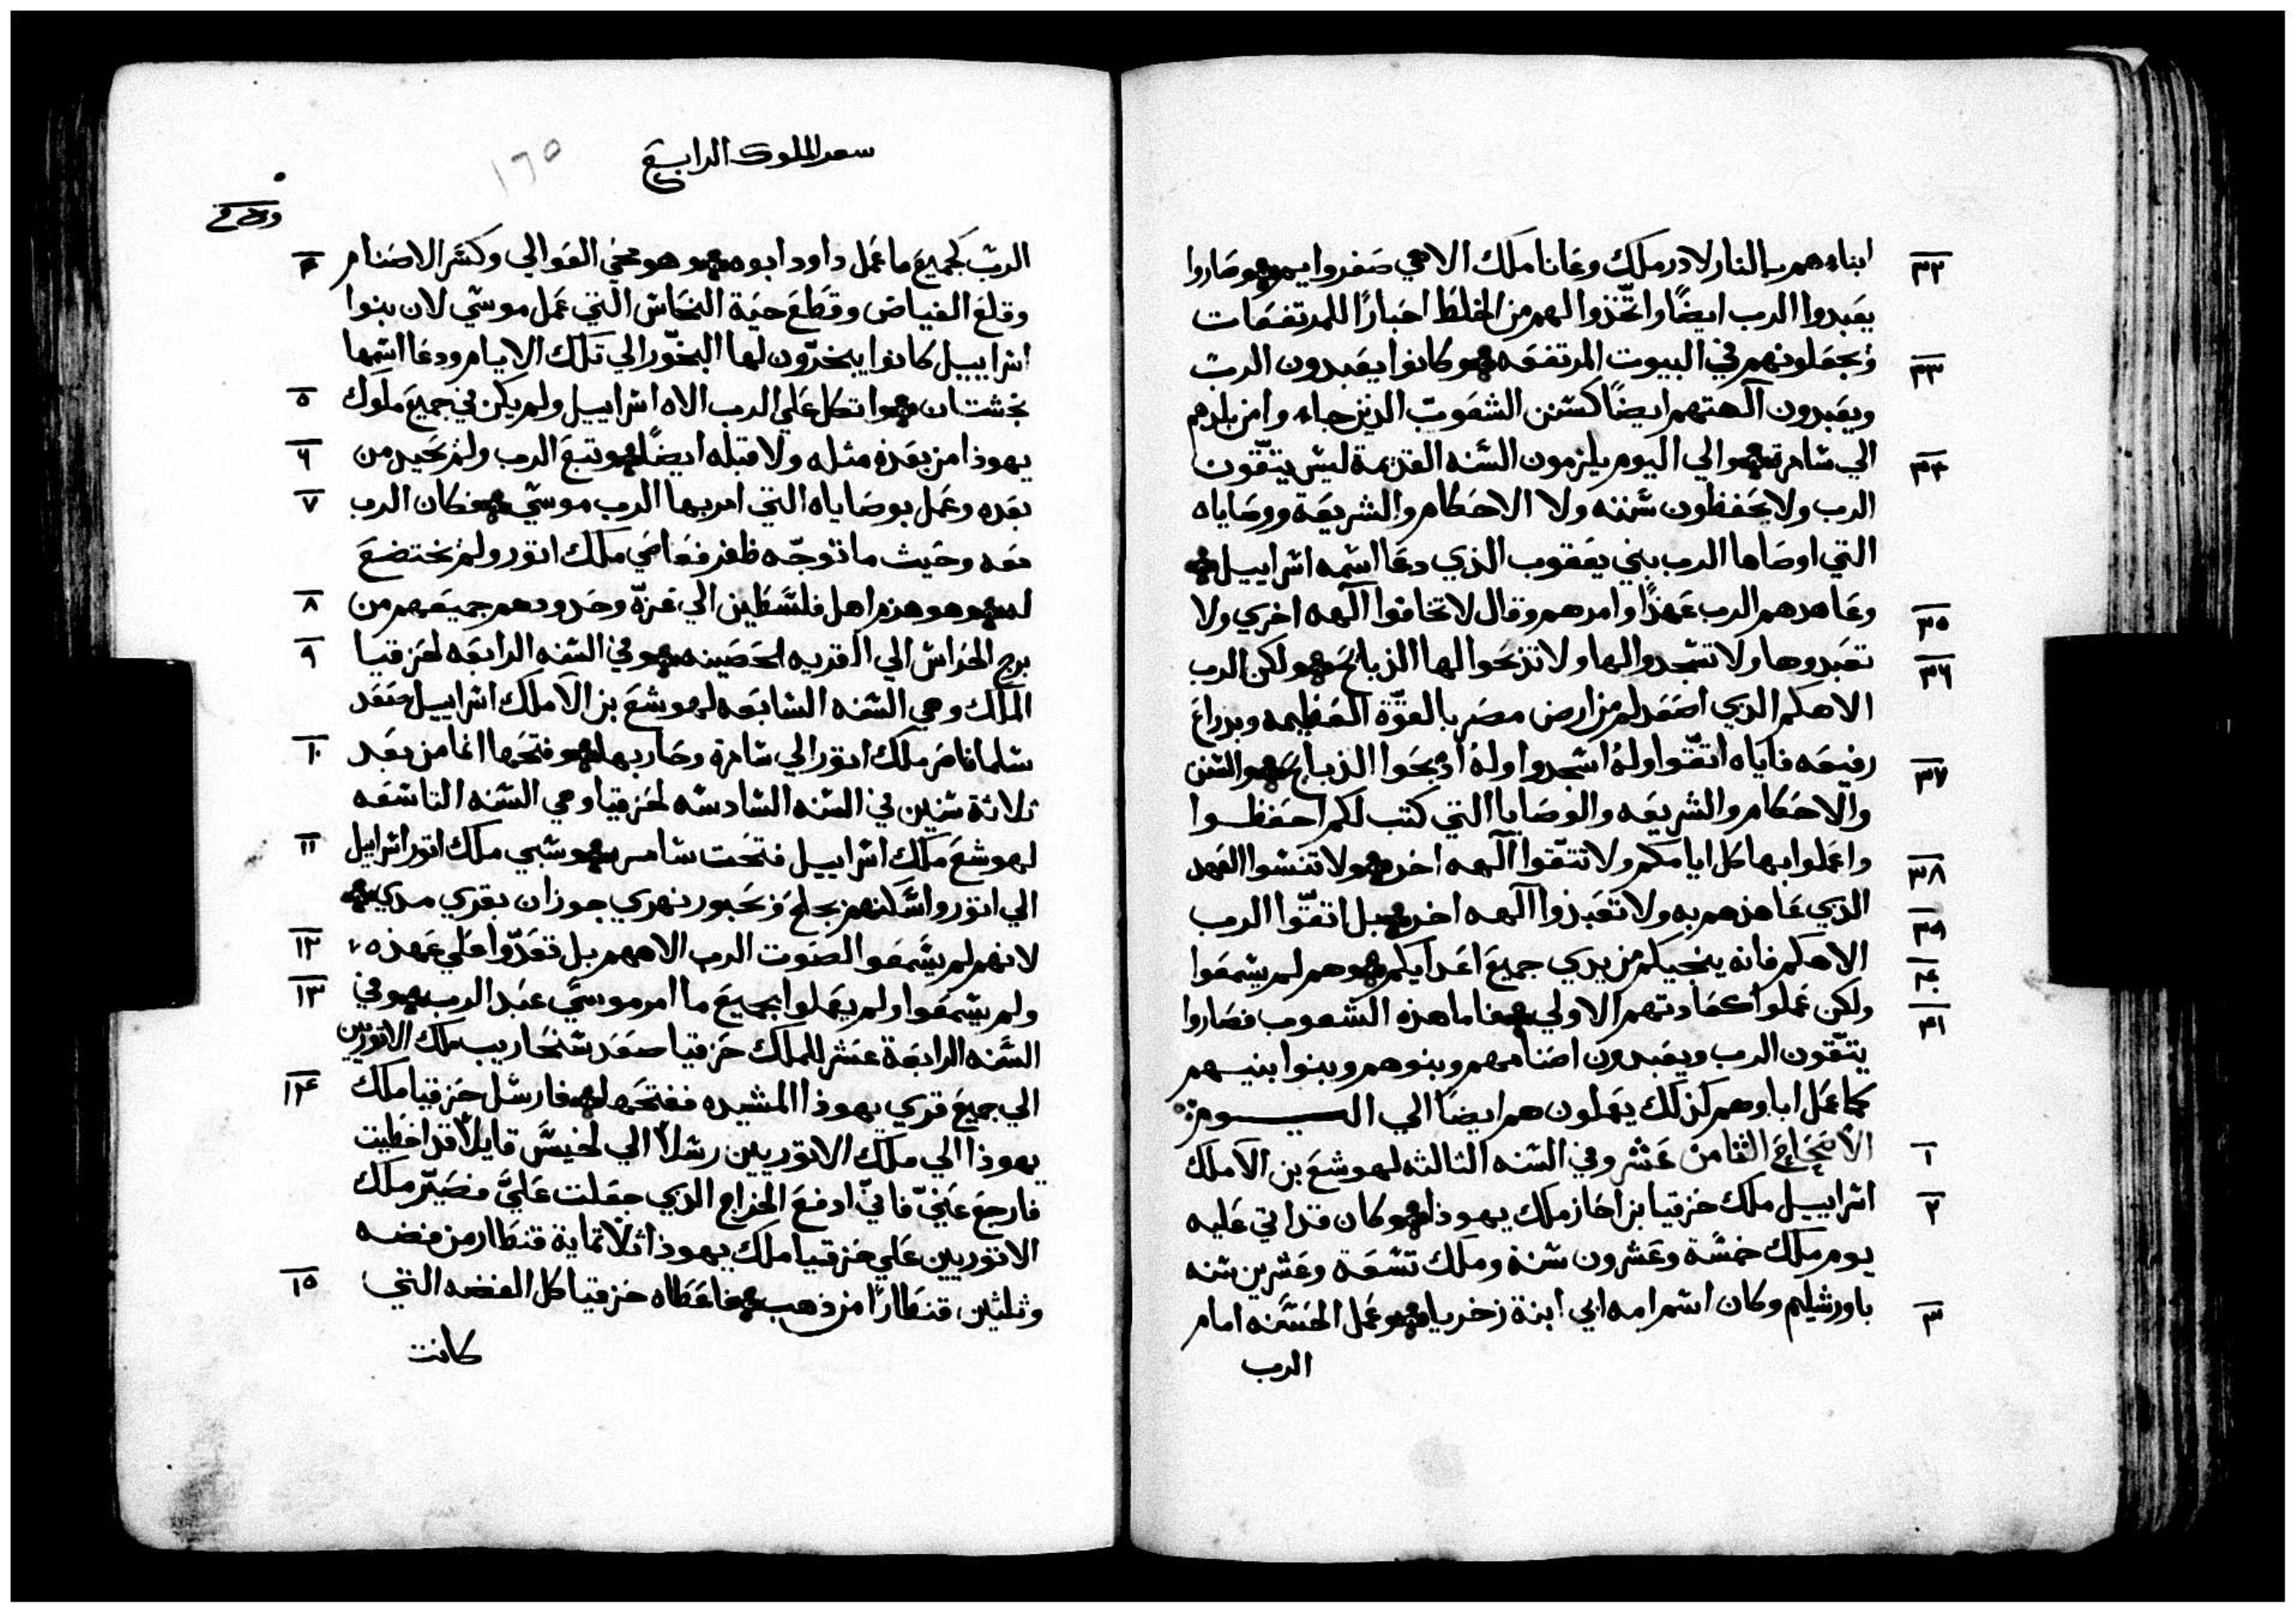 ٣٢ ابناءهم بالنار لادرملك وعاناملك الاهي صفروايم وصاروا
يعبدوا الرب ايضًا واتّخذوا لهم من الخلط احبارًا للمرتفعات
٣٣ ويجعلونهم في البيوت المرتفعه وكانوا يعبدون الرب
ويعبدون آلهتهم ايضًا كسنن الشعوب الذين جاءوا من بلدهم
٣٤ الي سامرة والي اليوم يلزمون السنه القديمة ليس يتّقون
الرب ولا يحفظون سننه ولا الاحكام والشريعة ووصاياه
التي اوصاها الرب بني يعقوب الذي دعا اسمه اسراييل
٣٥ وعاهدهم الرب عهدًا وامرهم وقال لا تخافوا آلهه اخري ولا
٣٦ تعبدوها ولا تسجدوا لها ولا تذبحوا لها الذبايح ولكن الرب
الاهكم الذي اصعدكم من ارض مصر بالقوّة العظيمه وبذراع
٣٧ رفيعه فاياه اتقّوا وله اسجدوا وله اذبحوا الذبايح والسنن
والاحكام والشريعه والوصايا التي كتب لكم احفظوا
٣٨ واعملوا بها كل ايامكم ولا تتقّوا آلهه اخر ولا تنسوا العهد
٣٩ الذي عاهدهم به ولا تعبدوا آلهه اخر بل اتقّوا الرب
٤٠ الاهكم فانه ينجيكم من يدي جميع اعدايكم وهم لم يسمعوا
٤١ ولكن عملوا كعادتهم الاولي فاما هذه الشعوب فصاروا
يتّقون الرب ويعبدون اصنامهم وبنوهم وبنوا بنيهم
كما عمل اباوهم كذلك يعملون هم ايضًا الي اليوم
١ الاصحاح الثامن عشر وفي السنه الثالثه لهوشع بن الا ملك
٢ اسراييل ملك حزقيا بن احاز ملك يهوذا وكان قد اتي عليه
يوم ملك خمسة وعشرون سنة وملك تسعة وعشرين سنه
٣ باورشليم وكان اسم امه ابي ابنة زخريا وعمل الحسنه امام
الرب
سفر الملوك الرابع
١٦٥
٤ الرب كجميع ما عمل داود ابوه وهو محي العوالي وكسّر الاصنام
وقلع الغياض وقطع حية النحاس التي عمل موسي لان بنوا
اسراييل كانوا يبخرّون لها البخور الي تلك الايام ودعا اسمها
٥ نخشتان واتكل علي الرب الاه اسراييل ولم يكن في جميع ملوك
٦ يهوذا من بعده مثله ولا قبله ايضًا وتبع الرب ولم يحيد من
٧ بعده وعمل بوصاياه التي امر بها الرب موسي فكان الرب
معه وحيث ما توجّه ظفر فعاصي ملك اتور ولم يختضع
٨ له وهو هزم اهل فلسطين الي غزّة وحدودهم جميعهم من
٩ برج الحراس الي القريه الحصينه وفي السنه الرابعه لحزقيا
الملك وهي السنه السابعه لهوشع بن الا ملك اسراييل صعد
١٠ سلماناصر ملك اتور الي سامرة وحاربها وفتحها انما من بعد
ثلاثة سنين في السنه السادسه لحزقيا وهي السنه التاسعه
١١ لهوشع ملك اسراييل فتحت سامره وسبي ملك اتور اسراييل
الي اتور واسكنهم بحلح وبحبور نهري جوزان بقري مدي
١٢ لانهم لم يسمعوا لصوت الرب الاههم بل تعدّوا علي عهده
١٣ ولم يسمعوا ولم يعملوا بجميع ما امر موسي عبد الرب وفي
السنه الرابعة عشر للملك حزقيا صعد سنحاريب ملك الاتوريين
١٤ الي جميع قري يهوذا المشيده ففتحها فارسل حزقيا ملك
يهوذا الي ملك الاتوريين رسلاً الي لخيس قايلاً قد اخطيت
فارجع عنيّ فانيّ ادفع الخراج الذي جعلت عليّ فصيّر ملك
الاتوريين علي حزقيا ملك يهوذا ثلاثماية قنطار من فضه
١٥ وثلثين قنطارًا من ذهب فاعطاه حزقيا كل الفضه التي
كانت